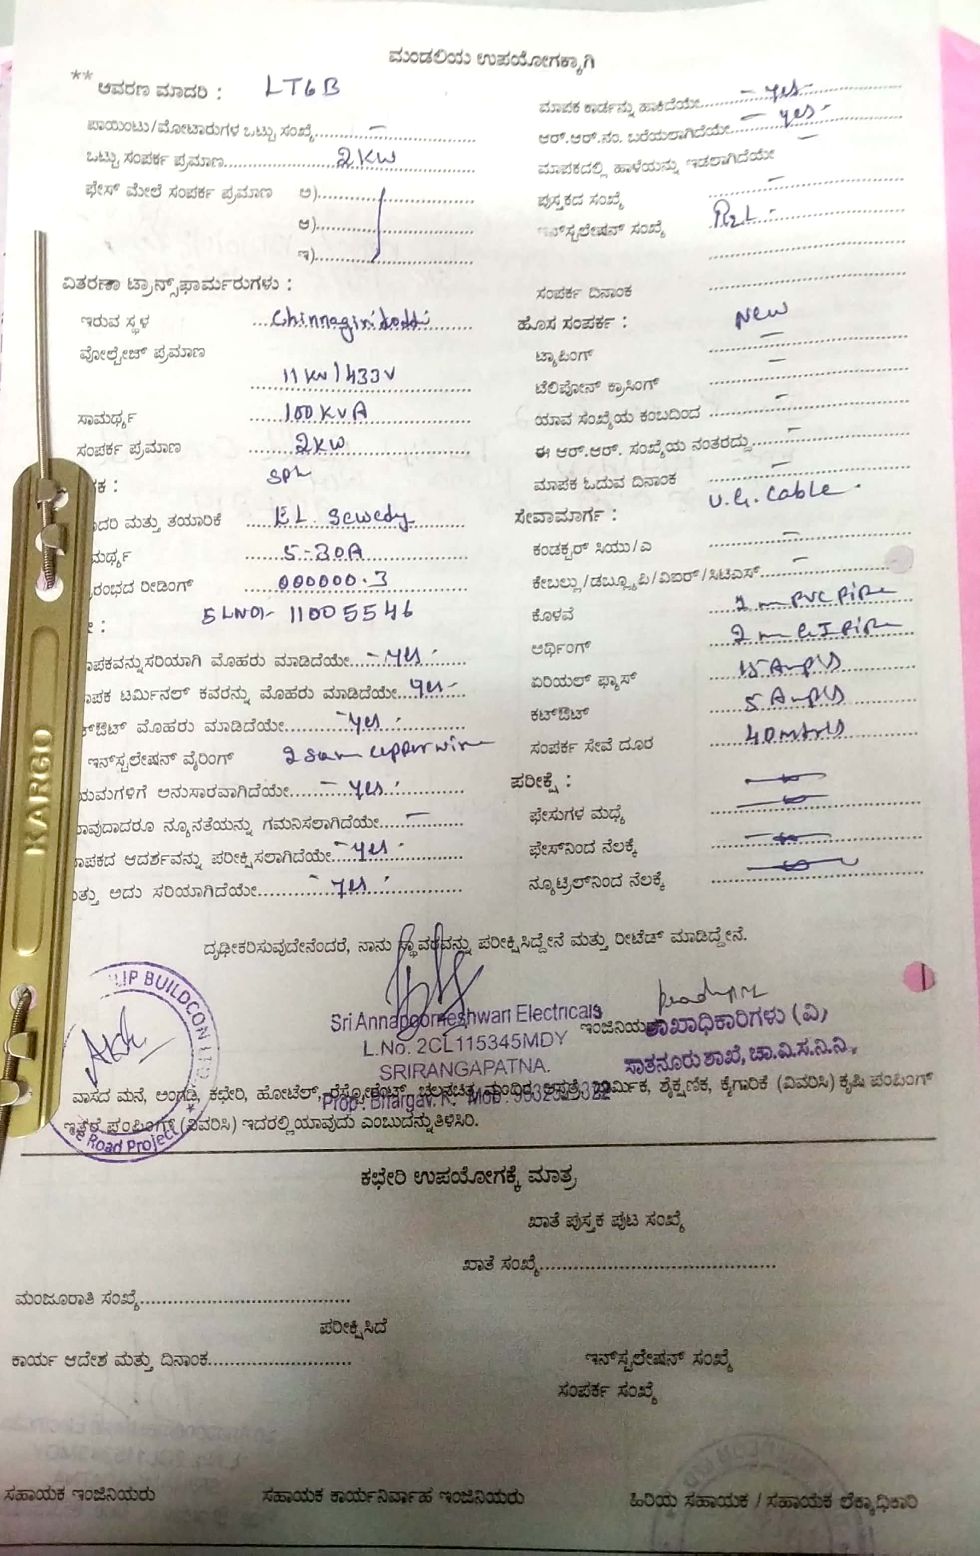 ಮಂಡಲಿಯ ಉಪಯೋಗಕ್ಕಾಗಿ
** ಆವರಣ ಮಾದರಿ : LT6B
ಪಾಯಿಂಟು/ಮೋಟಾರುಗಳ ಒಟ್ಟು ಸಂಖ್ಯೆ..... –
ಒಟ್ಟು ಸಂಪರ್ಕ ಪ್ರಮಾಣ..... 2KW
ಫೇಸ್ ಮೇಲೆ ಸಂಪರ್ಕ ಪ್ರಮಾಣ ಅ).....
ಆ).....
ಇ).....
ವಿತರಣಾ ಟ್ರಾನ್ಸ್‌ಫಾರ್ಮರುಗಳು :
ಇರುವ ಸ್ಥಳ ... Chinnagiridoddi
ವೋಲ್ಟೇಜ್ ಪ್ರಮಾಣ
11KV/433V
ಸಾಮರ್ಥ್ಯ 100KVA
ಸಂಪರ್ಕ ಪ್ರಮಾಣ 2KW
ಕ :
ಾದರಿ ಮತ್ತು ತಯಾರಿಕೆ EL. Sewedy
ಮರ್ಥ್ಯ 5-30A
ರಂಭದ ರೀಡಿಂಗ್ 000000.3
SLNO- 11005546
ಾಪಕವನ್ನು ಸರಿಯಾಗಿ ಮೊಹರು ಮಾಡಿದೆಯೇ – yes
ಾಪಕ ಟರ್ಮಿನಲ್ ಕವರನ್ನು ಮೊಹರು ಮಾಡಿದೆಯೇ.... yes -
ಟ್‌ಔಟ್ ಮೊಹರು ಮಾಡಿದೆಯೇ..... - yes
ಇನ್‌ಸ್ಟಲೇಷನ್ ವೈರಿಂಗ್ 2 copper wire
ಯಮಗಳಿಗೆ ಅನುಸಾರವಾಗಿದೆಯೇ..... – yes
ಾವುದಾದರೂ ನ್ಯೂನತೆಯನ್ನು ಗಮನಿಸಲಾಗಿದೆಯೇ.... –
ಾಪಕದ ಆದರ್ಶವನ್ನು ಪರೀಕ್ಷಿಸಲಾಗಿದೆಯೇ - yes
ತ್ತು ಅದು ಸರಿಯಾಗಿದೆಯೇ..... - yes
ಮಾಪಕ ಕಾರ್ಡನ್ನು ಹಾಕಿದೆಯೇ..... – yes -
ಆರ್.ಆರ್.ನಂ. ಬರೆಯಲಾಗಿದೆಯೇ..... – yes -
ಮಾಪಕದಲ್ಲಿ ಹಾಳೆಯನ್ನು ಇಡಲಾಗಿದೆಯೇ –
ಪುಸ್ತಕದ ಸಂಖ್ಯೆ –
ಇನ್‌ಸ್ಟಲೇಷನ್ ಸಂಖ್ಯೆ
ಸಂಪರ್ಕ ದಿನಾಂಕ
ಹೊಸ ಸಂಪರ್ಕ : New
ಟ್ಯಾಪಿಂಗ್ –
ಟೆಲಿಪೋನ್ ಕ್ರಾಸಿಂಗ್ –
ಯಾವ ಸಂಖ್ಯೆಯ ಕಂಬದಿಂದ –
ಈ ಆರ್.ಆರ್. ಸಂಖ್ಯೆಯ ನಂತರದ್ದು..... –
ಮಾಪಕ ಓದುವ ದಿನಾಂಕ –
ಸೇವಾಮಾರ್ಗ : U.G. Cable.
ಕಂಡಕ್ಟರ್ ಸಿಯು/ಎ –
ಕೇಬಲ್ಲು/ಡಬ್ಲ್ಯೂಪಿ/ವಿಐರ್/ಸಿಟಿಎಸ್..... –
ಕೊಳವೆ 2 m PVC Pipe
ಅರ್ಥಿಂಗ್ 2 m GI Pipe
ಏರಿಯಲ್ ಫ್ಯೂಸ್ 15 Amps
ಕಟ್‌ಔಟ್ 5 Amps
ಸಂಪರ್ಕ ಸೇವೆ ದೂರ 40 mtrs
ಪರೀಕ್ಷೆ :
ಫೇಸುಗಳ ಮಧ್ಯೆ
ಫೇಸ್‌ನಿಂದ ನೆಲಕ್ಕೆ
ನ್ಯೂಟ್ರಲ್‌ನಿಂದ ನೆಲಕ್ಕೆ
ದೃಢೀಕರಿಸುವುದೇನೆಂದರೆ, ನಾನು ಸ್ಥಾವರವನ್ನು ಪರೀಕ್ಷಿಸಿದ್ದೇನೆ ಮತ್ತು ರೀಟೆಡ್ ಮಾಡಿದ್ದೇನೆ.
LIP BUILDCON LTD
Road Project
Sri Annapoorneshwari Electricals
L.No. 2CL115345MDY
SRIRANGAPATNA.
Prop : Bhargav. K. Mob :
ಇಂಜಿನಿಯ
ಶಾಖಾಧಿಕಾರಿಗಳು (ವಿ)
ಸಾತನೂರು ಶಾಖೆ, ಚಾ.ವಿ.ಸ.ನಿ.ನಿ.,
ವಾಸದ ಮನೆ, ಅಂಗಡಿ, ಕಛೇರಿ, ಹೋಟೆಲ್, ರೆಸ್ಟೋರೆಂಟ್, ಚಲನಚಿತ್ರ ಮಂದಿರ, ಆಸ್ಪತ್ರೆ, ಧಾರ್ಮಿಕ, ಶೈಕ್ಷಣಿಕ, ಕೈಗಾರಿಕೆ (ವಿವರಿಸಿ) ಕೃಷಿ ಪಂಪಿಂಗ್
ಇತರೆ ಪಂಪಿಂಗ್ (ವಿವರಿಸಿ) ಇದರಲ್ಲಿ ಯಾವುದು ಎಂಬುದನ್ನು ತಿಳಿಸಿರಿ.
ಕಛೇರಿ ಉಪಯೋಗಕ್ಕೆ ಮಾತ್ರ
ಖಾತೆ ಪುಸ್ತಕ ಪುಟ ಸಂಖ್ಯೆ
ಖಾತೆ ಸಂಖ್ಯೆ.....
ಮಂಜೂರಾತಿ ಸಂಖ್ಯೆ.....
ಪರೀಕ್ಷಿಸಿದೆ
ಕಾರ್ಯ ಆದೇಶ ಮತ್ತು ದಿನಾಂಕ.....
ಇನ್‌ಸ್ಟಲೇಷನ್ ಸಂಖ್ಯೆ
ಸಂಪರ್ಕ ಸಂಖ್ಯೆ
ಸಹಾಯಕ ಇಂಜಿನಿಯರು
ಸಹಾಯಕ ಕಾರ್ಯನಿರ್ವಾಹ ಇಂಜಿನಿಯರು
ಹಿರಿಯ ಸಹಾಯಕ / ಸಹಾಯಕ ಲೆಕ್ಕಾಧಿಕಾರಿ
KARGO